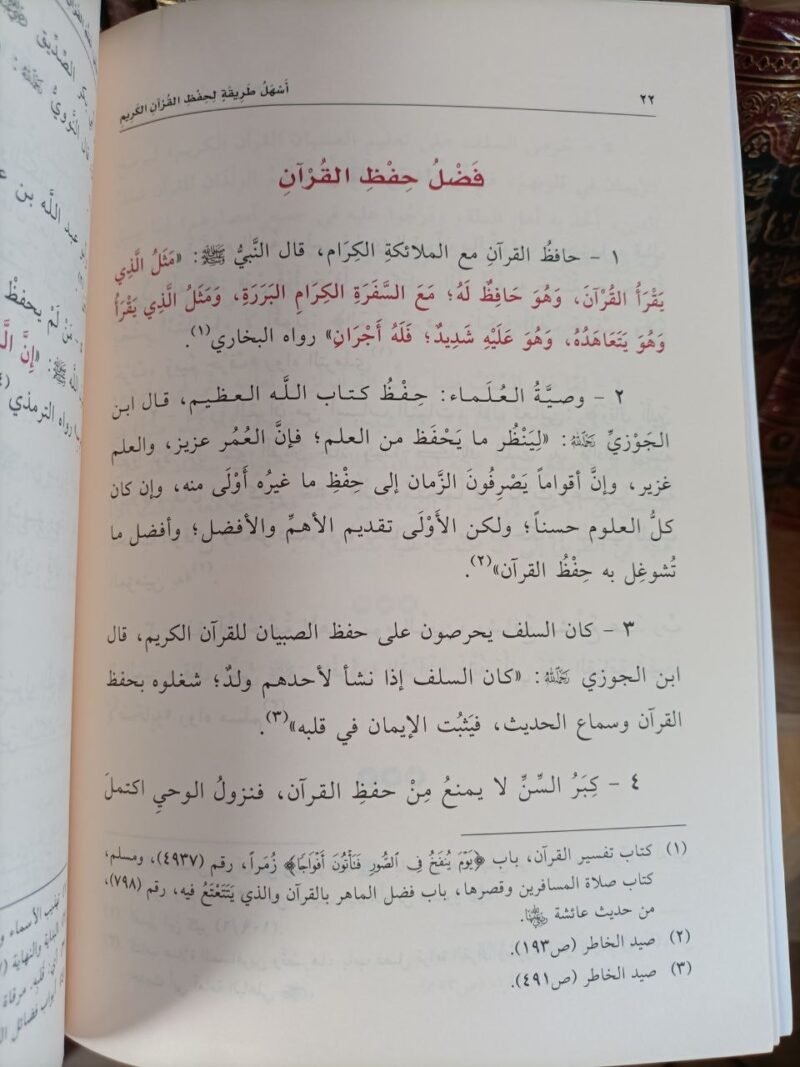 ٢٢
أَسْهَلُ طَرِيقَةٍ لِحِفْظِ القُرْآنِ الكَرِيمِ
فَضْلُ حِفْظِ القُرْآنِ
١ - حافظُ القرآنِ مع الملائكةِ الكِرَام، قال النَّبيُّ ﷺ: «مَثَلُ الَّذِي
يَقْرَأُ القُرْآنَ، وَهُوَ حَافِظٌ لَهُ؛ مَعَ السَّفَرَةِ الكِرَامِ البَرَرَةِ، وَمَثَلُ الَّذِي يَقْرَأُ
وَهُوَ يَتَعَاهَدُهُ، وَهُوَ عَلَيْهِ شَدِيدٌ؛ فَلَهُ أَجْرَانِ» رواه البخاري(١).
٢ - وصيَّةُ العُلَماء: حِفْظُ كتاب اللَّه العظيم، قال ابن
الجَوْزيِّ رَحِمَهُ اللهُ: «لِيَنْظُر ما يَحْفَظ من العلم؛ فإنَّ العُمُر عزيز، والعلم
غزير، وإنَّ أقواماً يَصْرِفُونَ الزَّمان إلى حِفْظِ ما غيرُه أَوْلَى منه، وإن كان
كلُّ العلوم حسناً؛ ولكن الأَوْلَى تقديم الأهمِّ والأفضل؛ وأفضل ما
تُشوغِل به حِفْظُ القرآن»(٢).
٣ - كان السلف يحرصون على حفظ الصبيان للقرآن الكريم، قال
ابن الجوزي رَحِمَهُ اللهُ: «كان السلف إذا نشأ لأحدهم ولدٌ؛ شغلوه بحفظ
القرآن وسماع الحديث، فيَثبُت الإيمان في قلبه»(٣).
٤ - كِبَرُ السِّنِّ لا يمنعُ مِنْ حفظِ القرآن، فنزولُ الوحيِ اكتملَ
(١) كتاب تفسير القرآن، باب ﴿يَوْمَ يُنفَخُ فِى ٱلصُّورِ فَتَأْتُونَ أَفْوَاجًا﴾ زُمَراً، رقم (٤٩٣٧)، ومسلم،
كتاب صلاة المسافرين وقصرها، باب فضل الماهر بالقرآن والذي يَتَتَعْتَعُ فيه، رقم (٧٩٨)،
من حديث عائشة رضي الله عنها.
(٢) صيد الخاطر (ص١٩٣).
(٣) صيد الخاطر (ص٤٩١).
الصِّدِّيق
عبد اللَّه بن
مَنْ لَمْ يحفظْ
ﷺ: «إِنَّ
رواه الترمذي